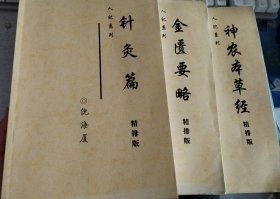 人纪系列
针灸篇
精排版
◎倪海厦
人纪系列
金匮要略
精排版
人纪系列
神农本草经
精排版